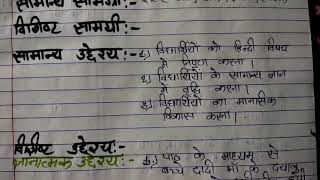 सामान्य सामग्री:-
विशिष्ट सामग्री:-
सामान्य उद्देश्य:- 1.) विद्यार्थियों को हिन्दी विषय
में निपुण करना।
2.) विद्यार्थियों के सामान्य ज्ञान
में वृद्धि करना।
3.) विद्यार्थियों का मानसिक
विकास करना।
विशिष्ट उद्देश्य:-
ज्ञानात्मक उद्देश्य:- 1.) पाठ के माध्यम से
बच्चे दादी माँ के दयालु